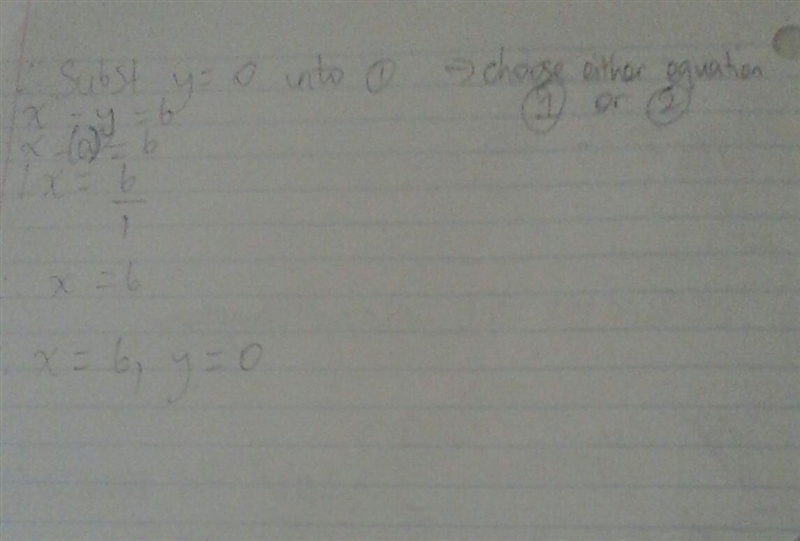 ∴ Subst y = 0 into ① → choose either equation
① or ②.
x - y = 6
x - (0) = 6
1x = 6/1
x = 6
∴ x = 6, y = 0